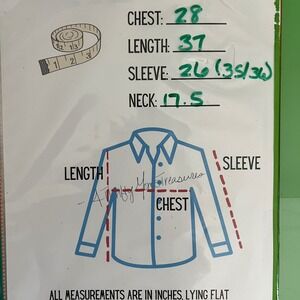 CHEST: 28
LENGTH: 37
SLEEVE: 26 (35/36)
NECK: 17.5
1 2 3
LENGTH
SLEEVE
A Thrifty Mom Treasures
CHEST
ALL MEASUREMENTS ARE IN INCHES, LYING FLAT